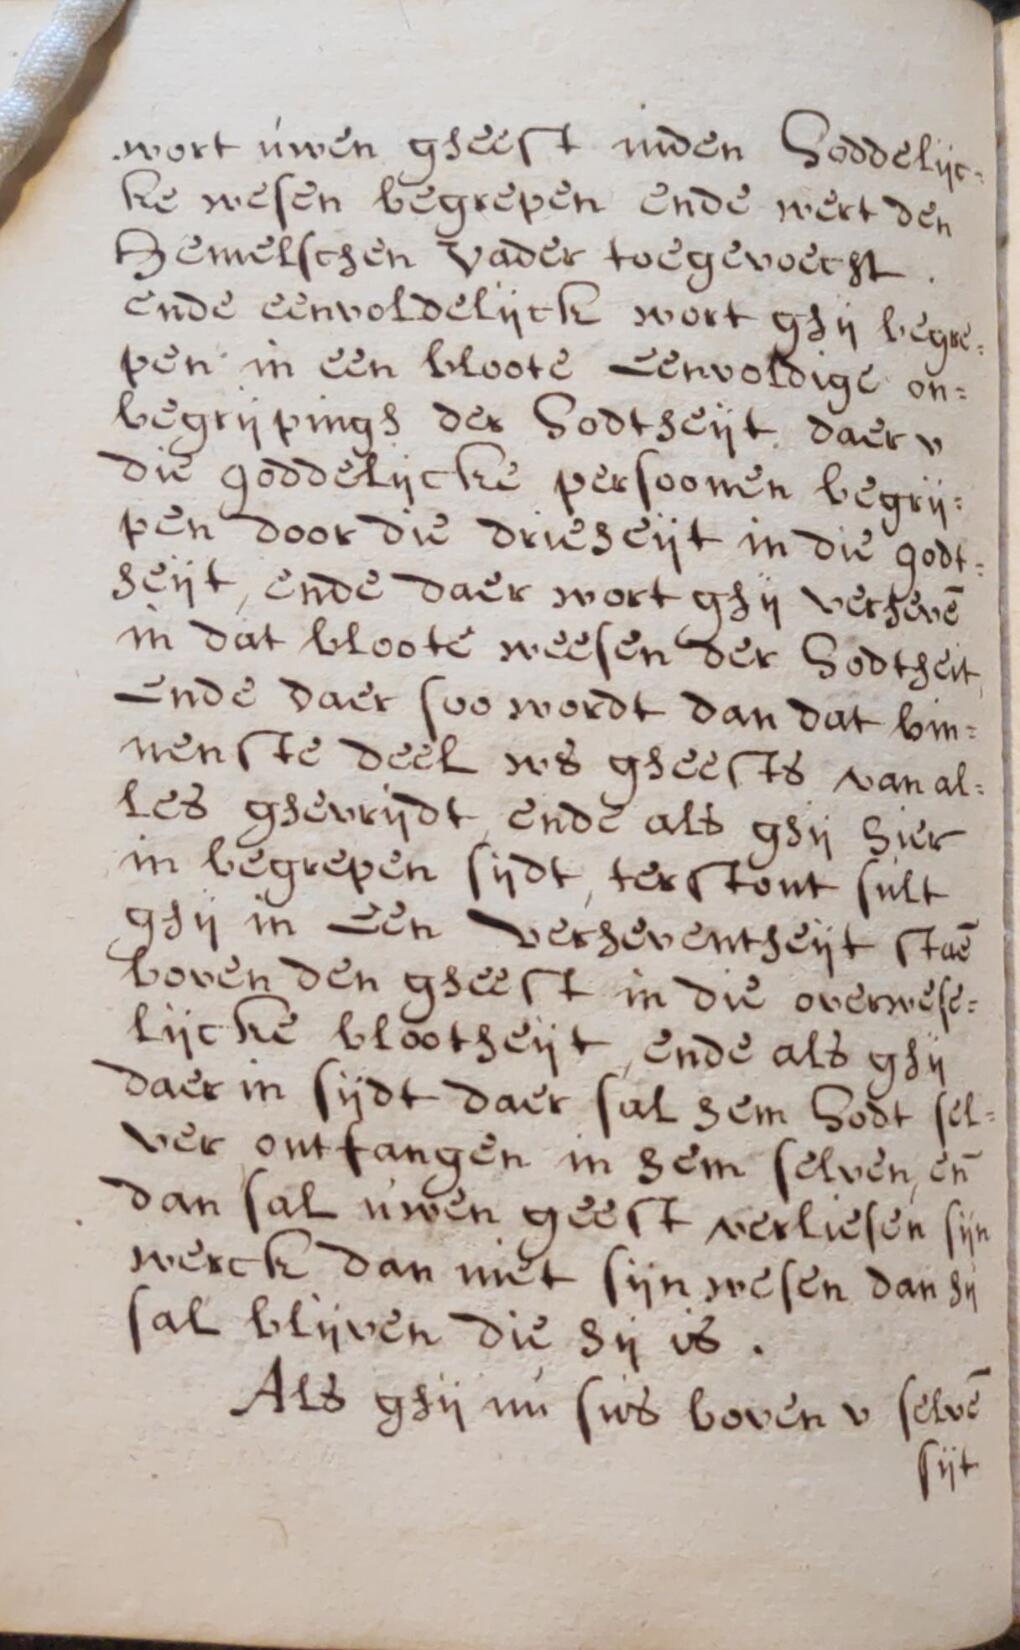 wort uwen gheest inden Goddelijc=
ke wesen begrepen ende wert den
Hemelschen Vader toegevoecht .
ende eenvoldelijck wort ghij begre=
pen in een bloote Eenvoldige on=
begrijpingh der Godtheijt daer v
die goddelijcke persoonen begrij=
pen door die drieheijt in die godt=
heijt, ende daer wort ghij verhevē
in dat bloote weesen der Godtheit,
Ende daer soo wordt dan dat bin=
nenste deel ws gheests van al=
les ghevrijdt, ende als ghij hier
in begrepen sijdt, terstont sult
ghij in Een verheventheijt staē
boven den gheest in die overwese=
lijcke blootheijt, ende als ghij
daer in sijdt daer sal hem Godt sel=
ver ontfangen in hem selven, en̄
dan sal uwen geest verliesen sijn
werck dan niet sijn wesen dan hij
sal blijven die hij is .
Als ghij nu sus boven v selvē
sijt